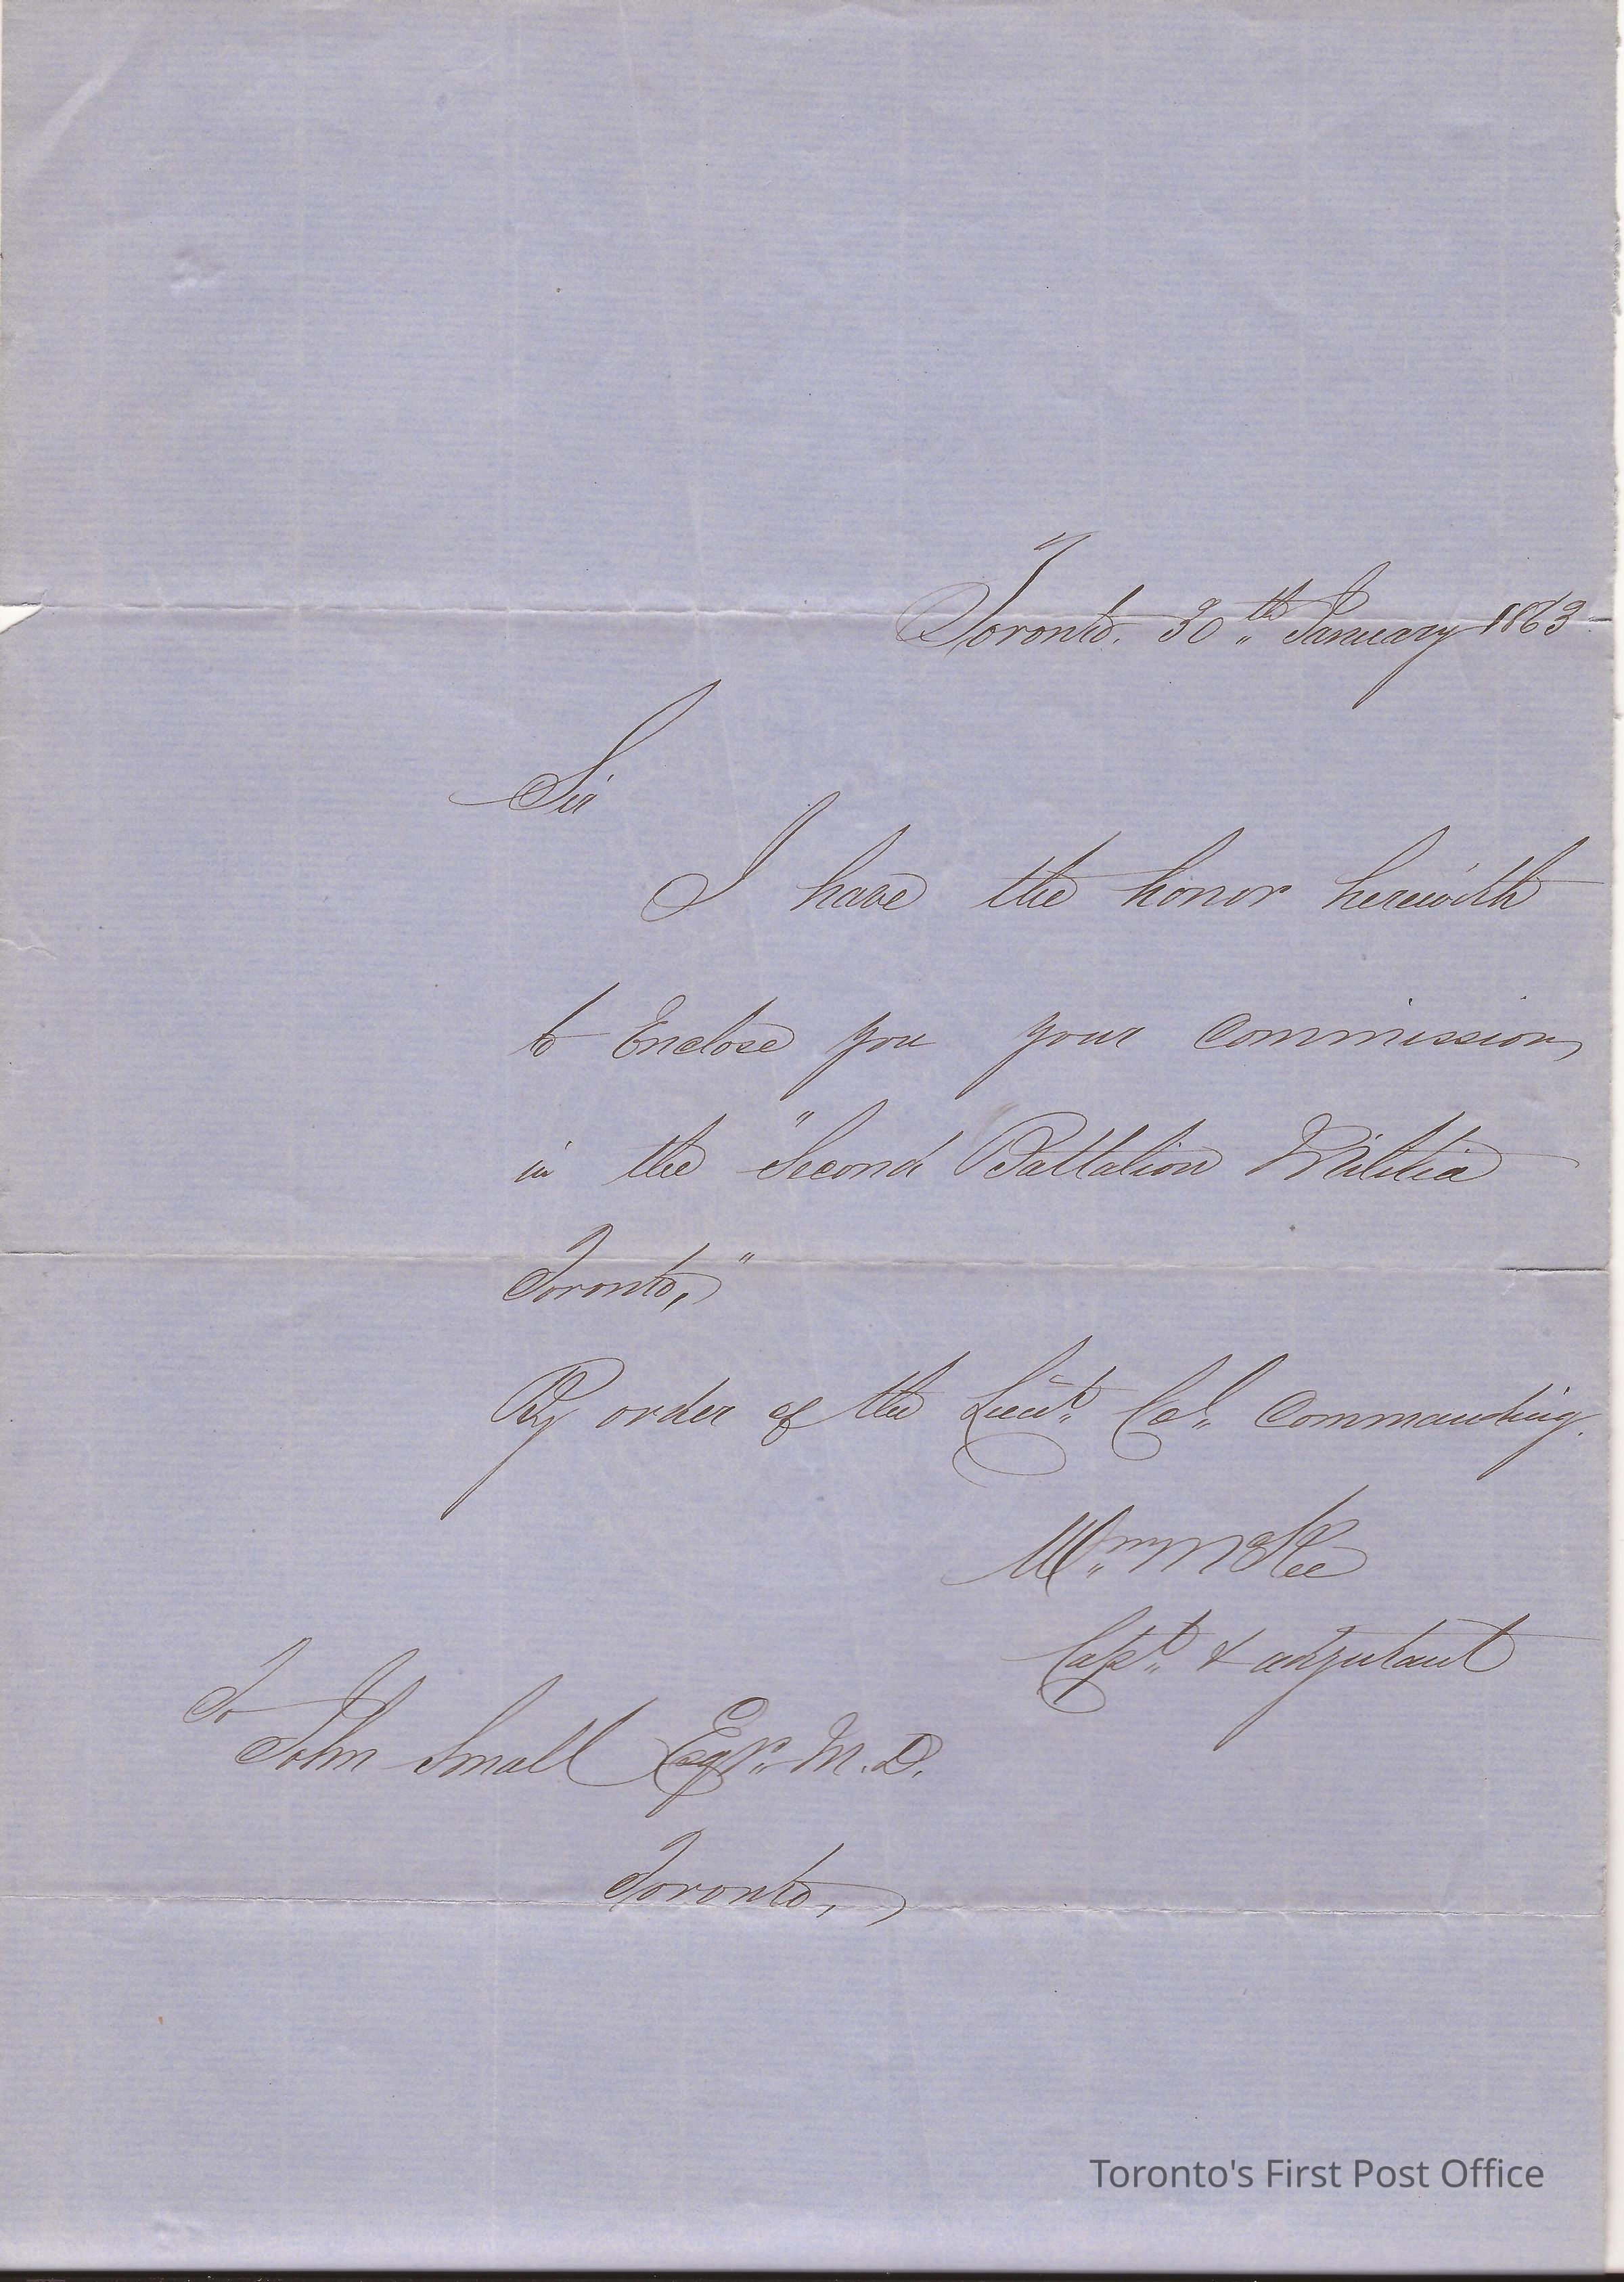 Toronto. 30th January 1863
Sir
I have the honor herewith
to Enclose you your Commission,
in the "Second Battalion Militia
Toronto,"
By order of the Lieut. Col. Commanding.
Wm McKee
Capt. & adjutant
To
John Small Esqr. M.D.
Toronto,
Toronto's First Post Office